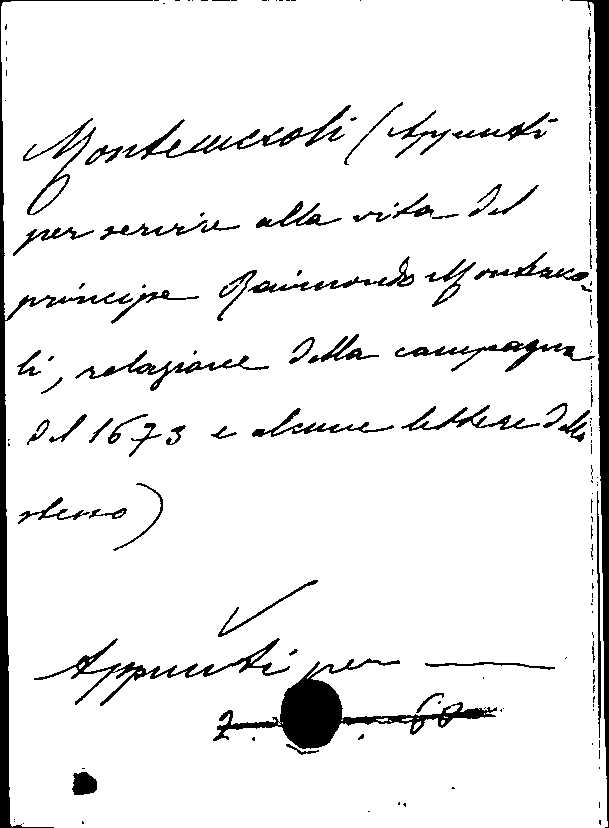 Montecuccoli (Appunti
per servire alla vita del
principe Raimondo Montecucco-
li, relazione della campagna
del 1673 e alcune lettere dello
stesso)
Appunti per —